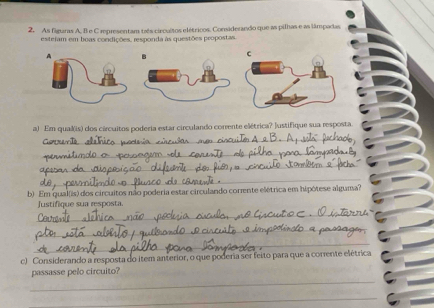 2. As figuras A, B e C representam três circuitos elétricos. Considerando que as pilhas e as lâmpadas
estejam em boas condições, responda às questões propostas.
A B C
a) Em qual(is) dos circuitos poderia estar circulando corrente elétrica? Justifique sua resposta.
Corrente elétrica poderia circular nos circuitos A e B. A, está fechado,
permitindo a passagem de corrente da pilha para lâmpada. B,
apesar da disposição diferente dos fios, o circuito também é fecha
do, permitindo o fluxo de corrente.
b) Em qual(is) dos circuitos não poderia estar circulando corrente elétrica em hipótese alguma?
Justifique sua resposta.
Corrente elétrica não poderia circular no Circuito C. O interru
ptor está aberto, quebrando o circuito e impedindo a passagem
de corrente da pilha para lâmpada.
c) Considerando a resposta do item anterior, o que poderia ser feito para que a corrente elétrica
passasse pelo circuito?